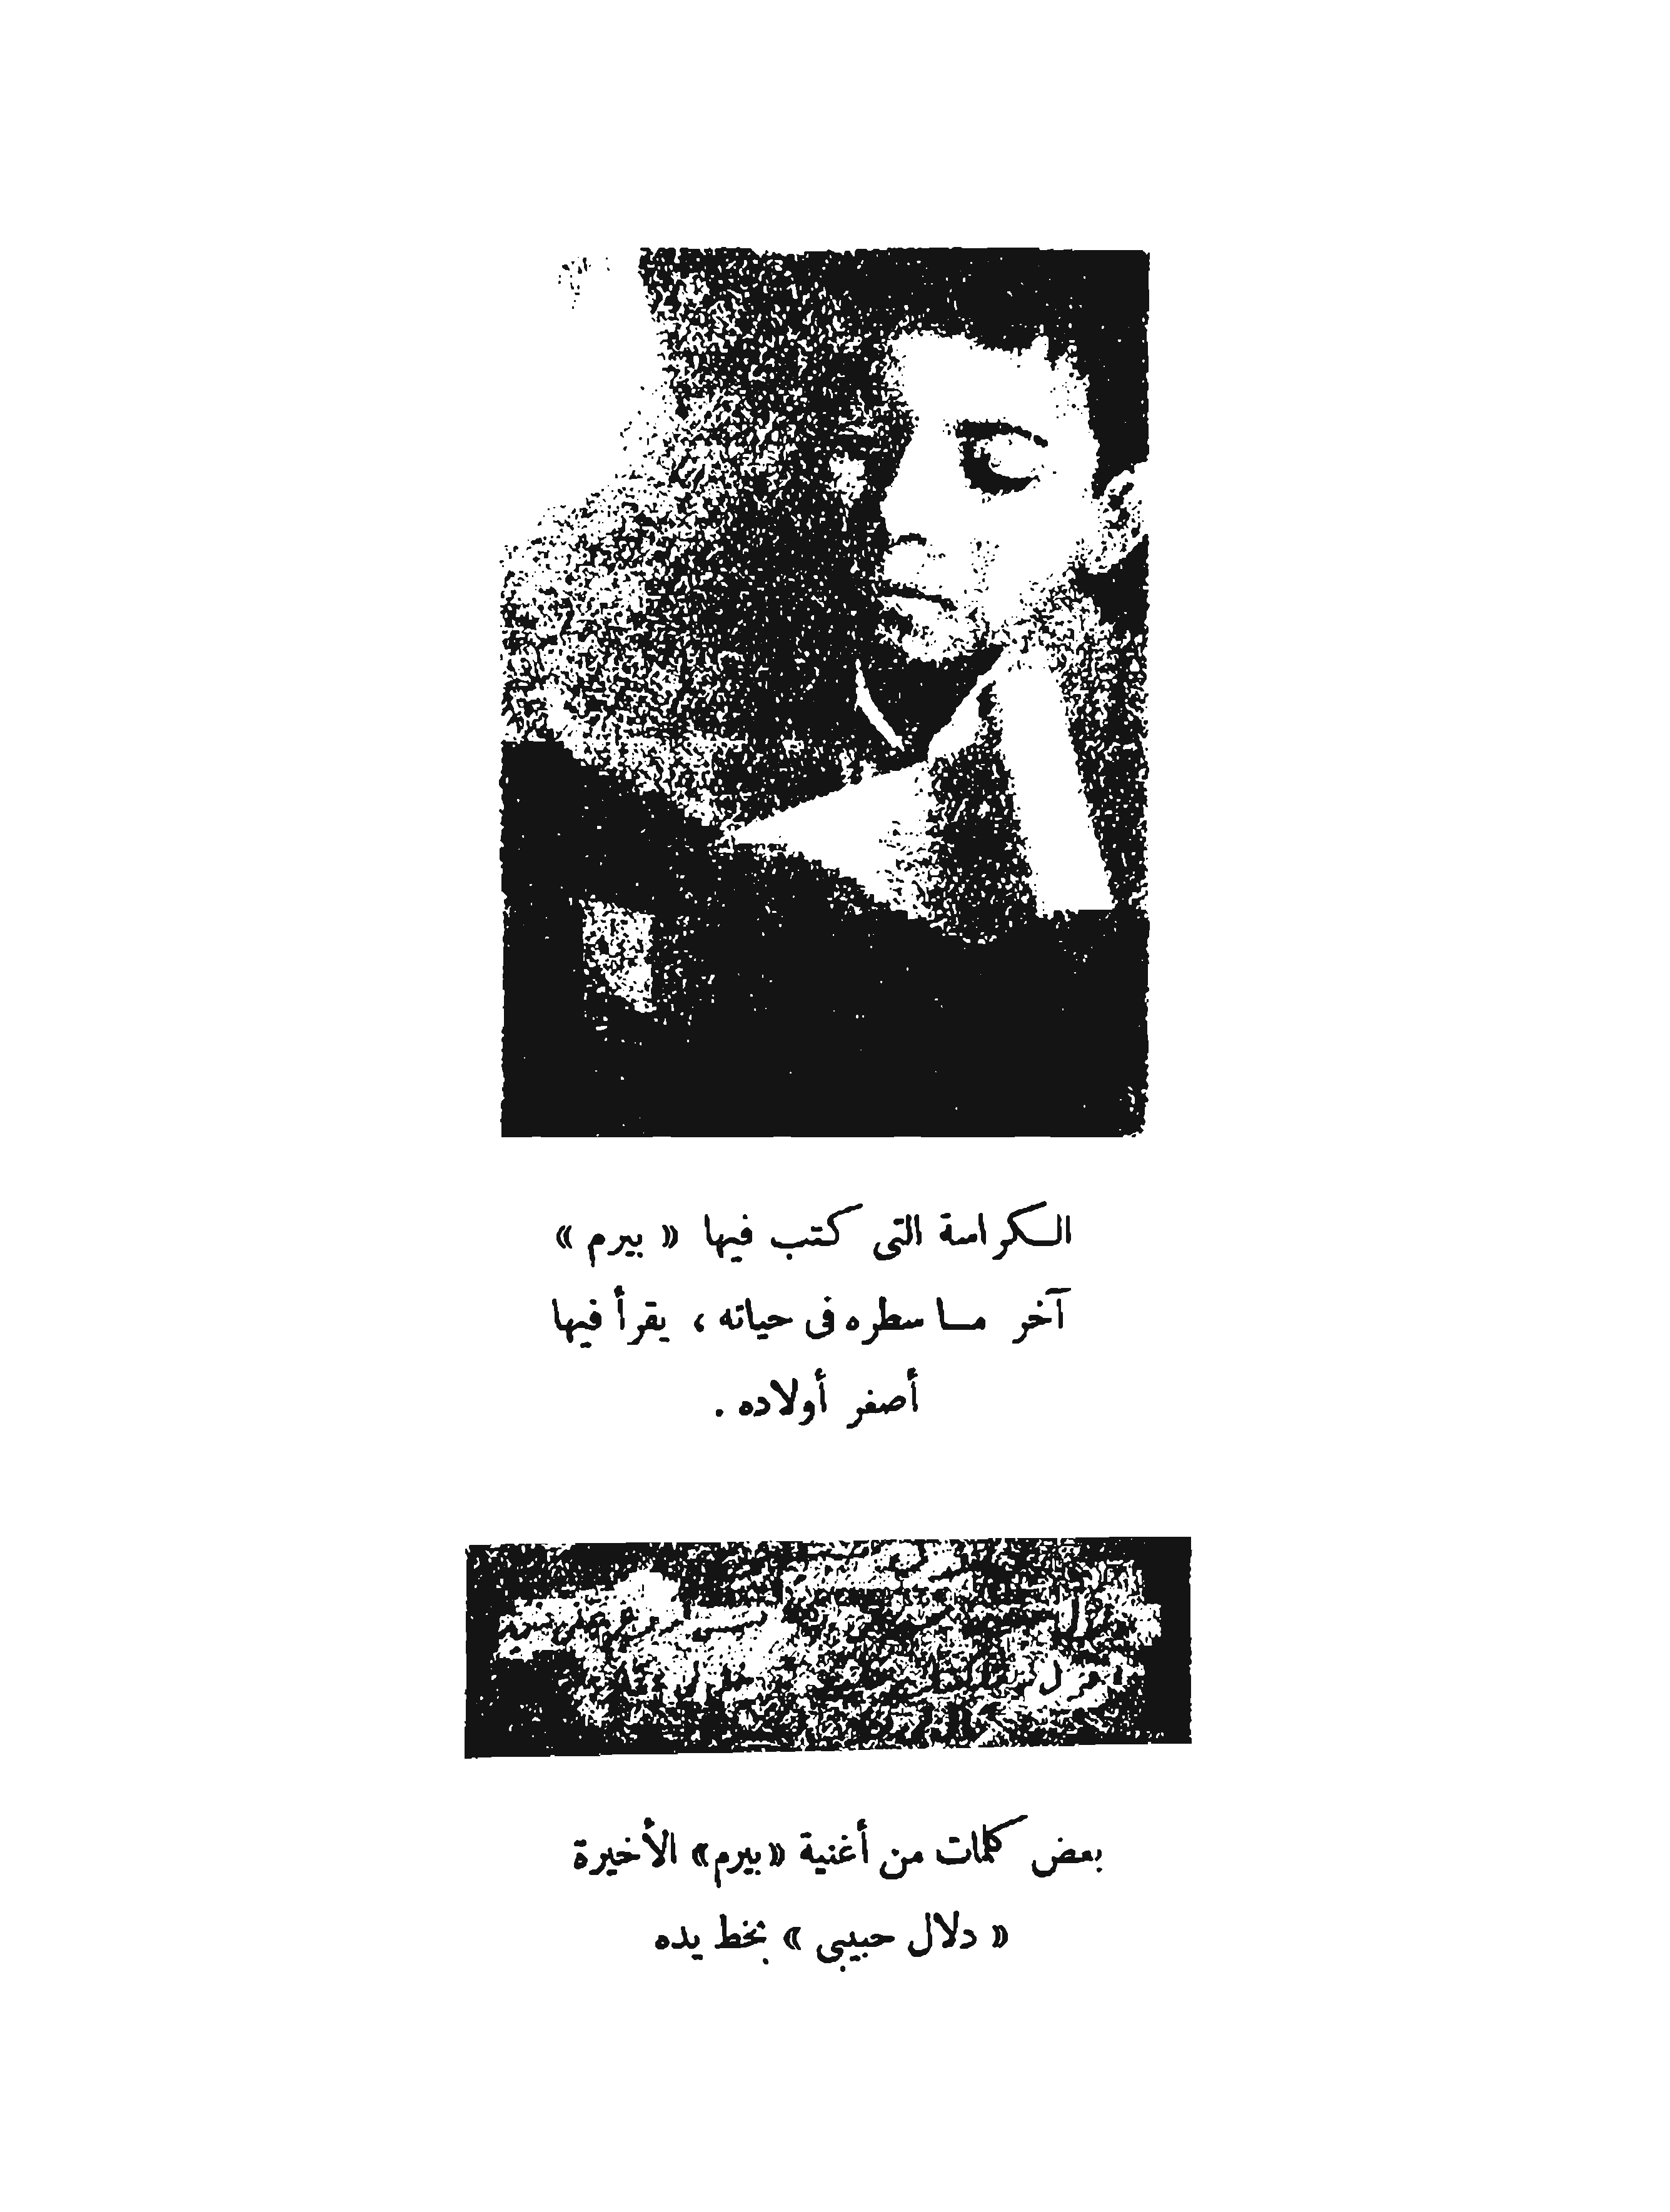 الكراسة التى كتب فيها « بيرم »
آخر ما سطره فى حياته ، يقرأ فيها
أصغر أولاده .
بعض كلمات من أغنية «بيرم» الأخيرة
« دلال حبيبى » بخط يده